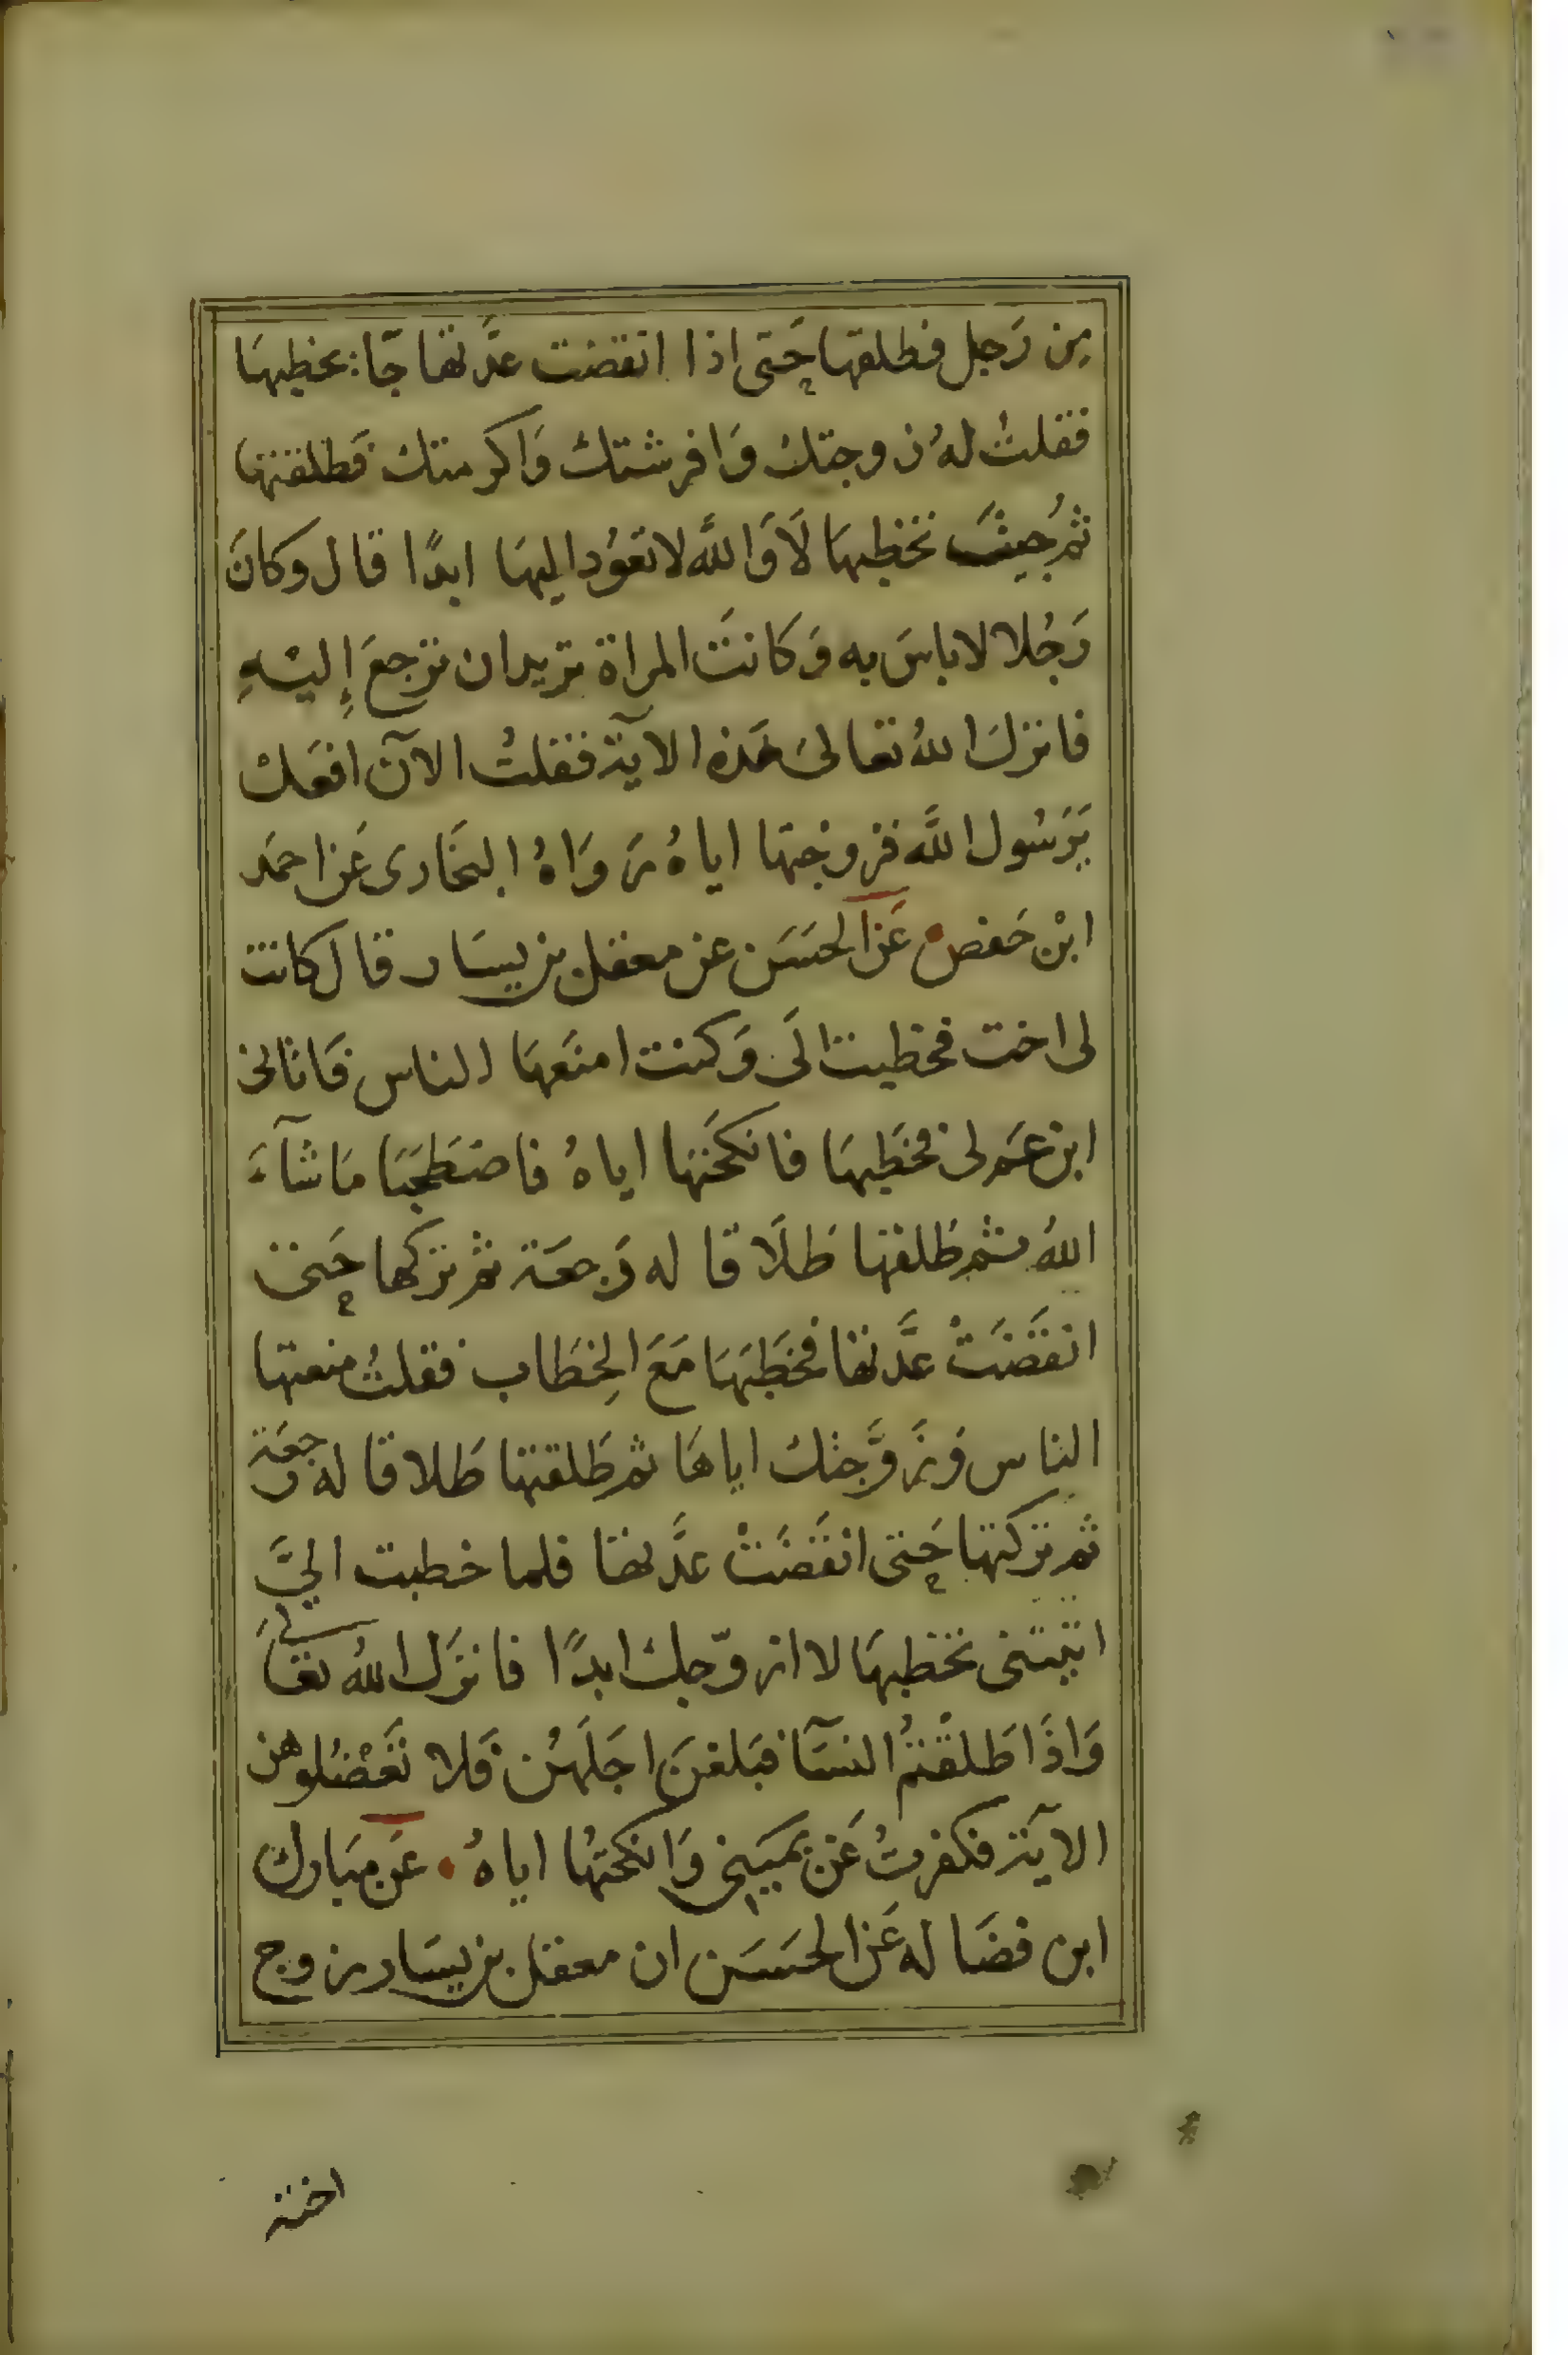 من رَجل فطلقها حَتى اذا انقضت عدَّتها جَّا يخطبهَا
فقلتُ لهُ زوجتك وَافرشتك وَاكرمتك فَطلقتها
ثُم جِيتَ تخطبهَا لَا وَاللَّه لا تعوُد اليهَا ابدًا قال وكانَ
رَجُلا لا باسَ به وَكانتَ المراة تريد ان ترجعَ إِليْهِ
فانزلَ اللهُ تعالىَ هَذه الآية فقلتُ الآن افعَل
يَرَسُول اللَّه فزوجتها اياهُ رَوَاهُ البخَارى عَن احمَد
ابْن حَفص عَن الحسَن عن معقل بن يسَار قال كانت
لى اخت فخطبت الَى وَكنت امنَعهَا الناس فَاتانى
ابن عَم لى فخطَبهَا فانكحَتها اياهُ فاصَطحَبَا مَا شآءَ
اللهُ ثم طَلقها طَلَاقا له رَجعَة ثم تركها حَتى
انقَضَتْ عدَّتها فخطَبَهَا مَعَ الخِطَاب فقلتُ منعتها
الناس وَزَوَّجتك اياهَا ثم طَلقتها طَلاقا له رجعَة
ثم تركتها حَتى انقَضَتْ عدَّتها فلما خطبت اليَّ
اتيتنى تخطبهَا لا ازوّجك ابدًا فانزَل اللهُ تعَالى
وَاذَا طَلقْتمُ النسَآ فبَلغنَ اجَلَهُن فَلا تَعْضُلوهن
الآيَة فكفرتُ عَن يميَنِى وَانكحتُها اياهُ عَن مبَارك
ابن فضَاله عَن الحسَن ان معقل بن يسَار زوج
اخته